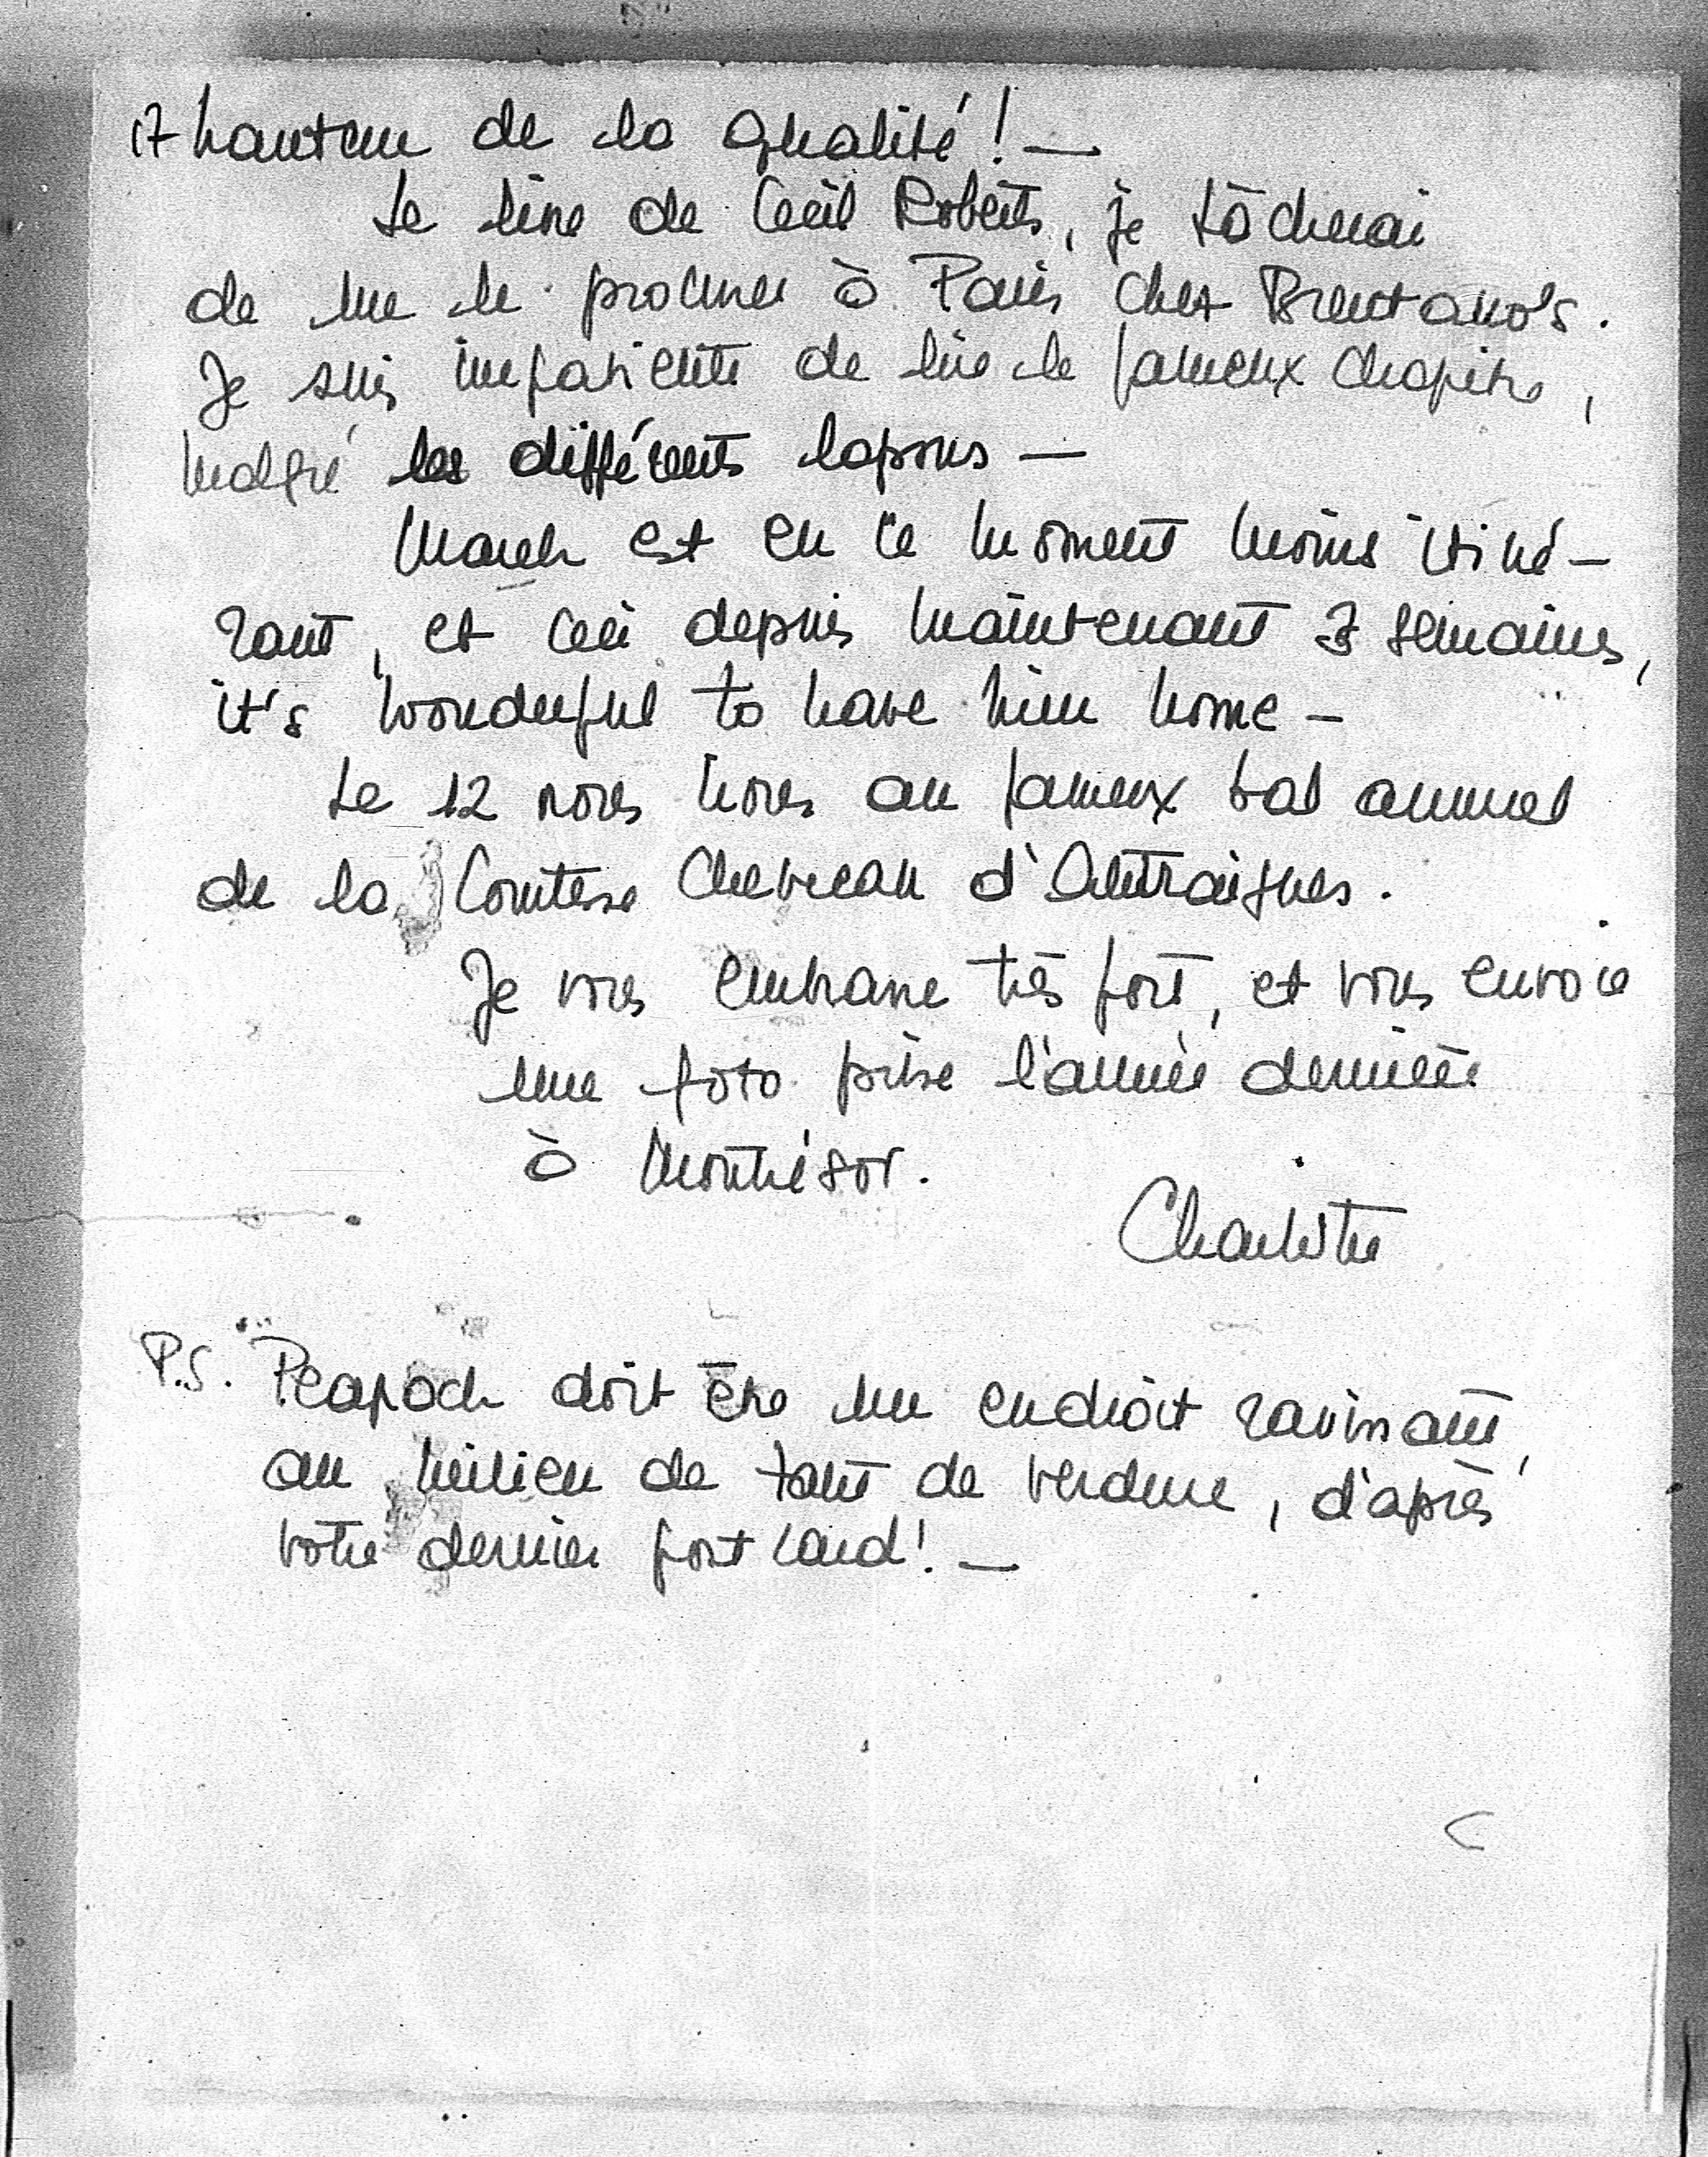 et hauteur de la qualité! —
Le livre de Cecil Roberts, je tâcherai
de me le procurer à Paris chez Brentano's.
Je suis impatiente de lire le fameux chapitre,
malgré les différents lapsus —
March est en ce moment moins itiné-
rant, et ceci depuis maintenant 3 semaines,
it's wonderful to have him home —
Le 12 nous irons au fameux bal annuel
de la Comtesse Chevreau d'Antraigues.
Je vous embrasse très fort, et vous envoie
une foto prise l'année dernière
à Montrésor.
Charlotte
P.S. Peapack doit être un endroit ravissant,
au milieu de tant de verdure, d'après
votre dernier post card! —